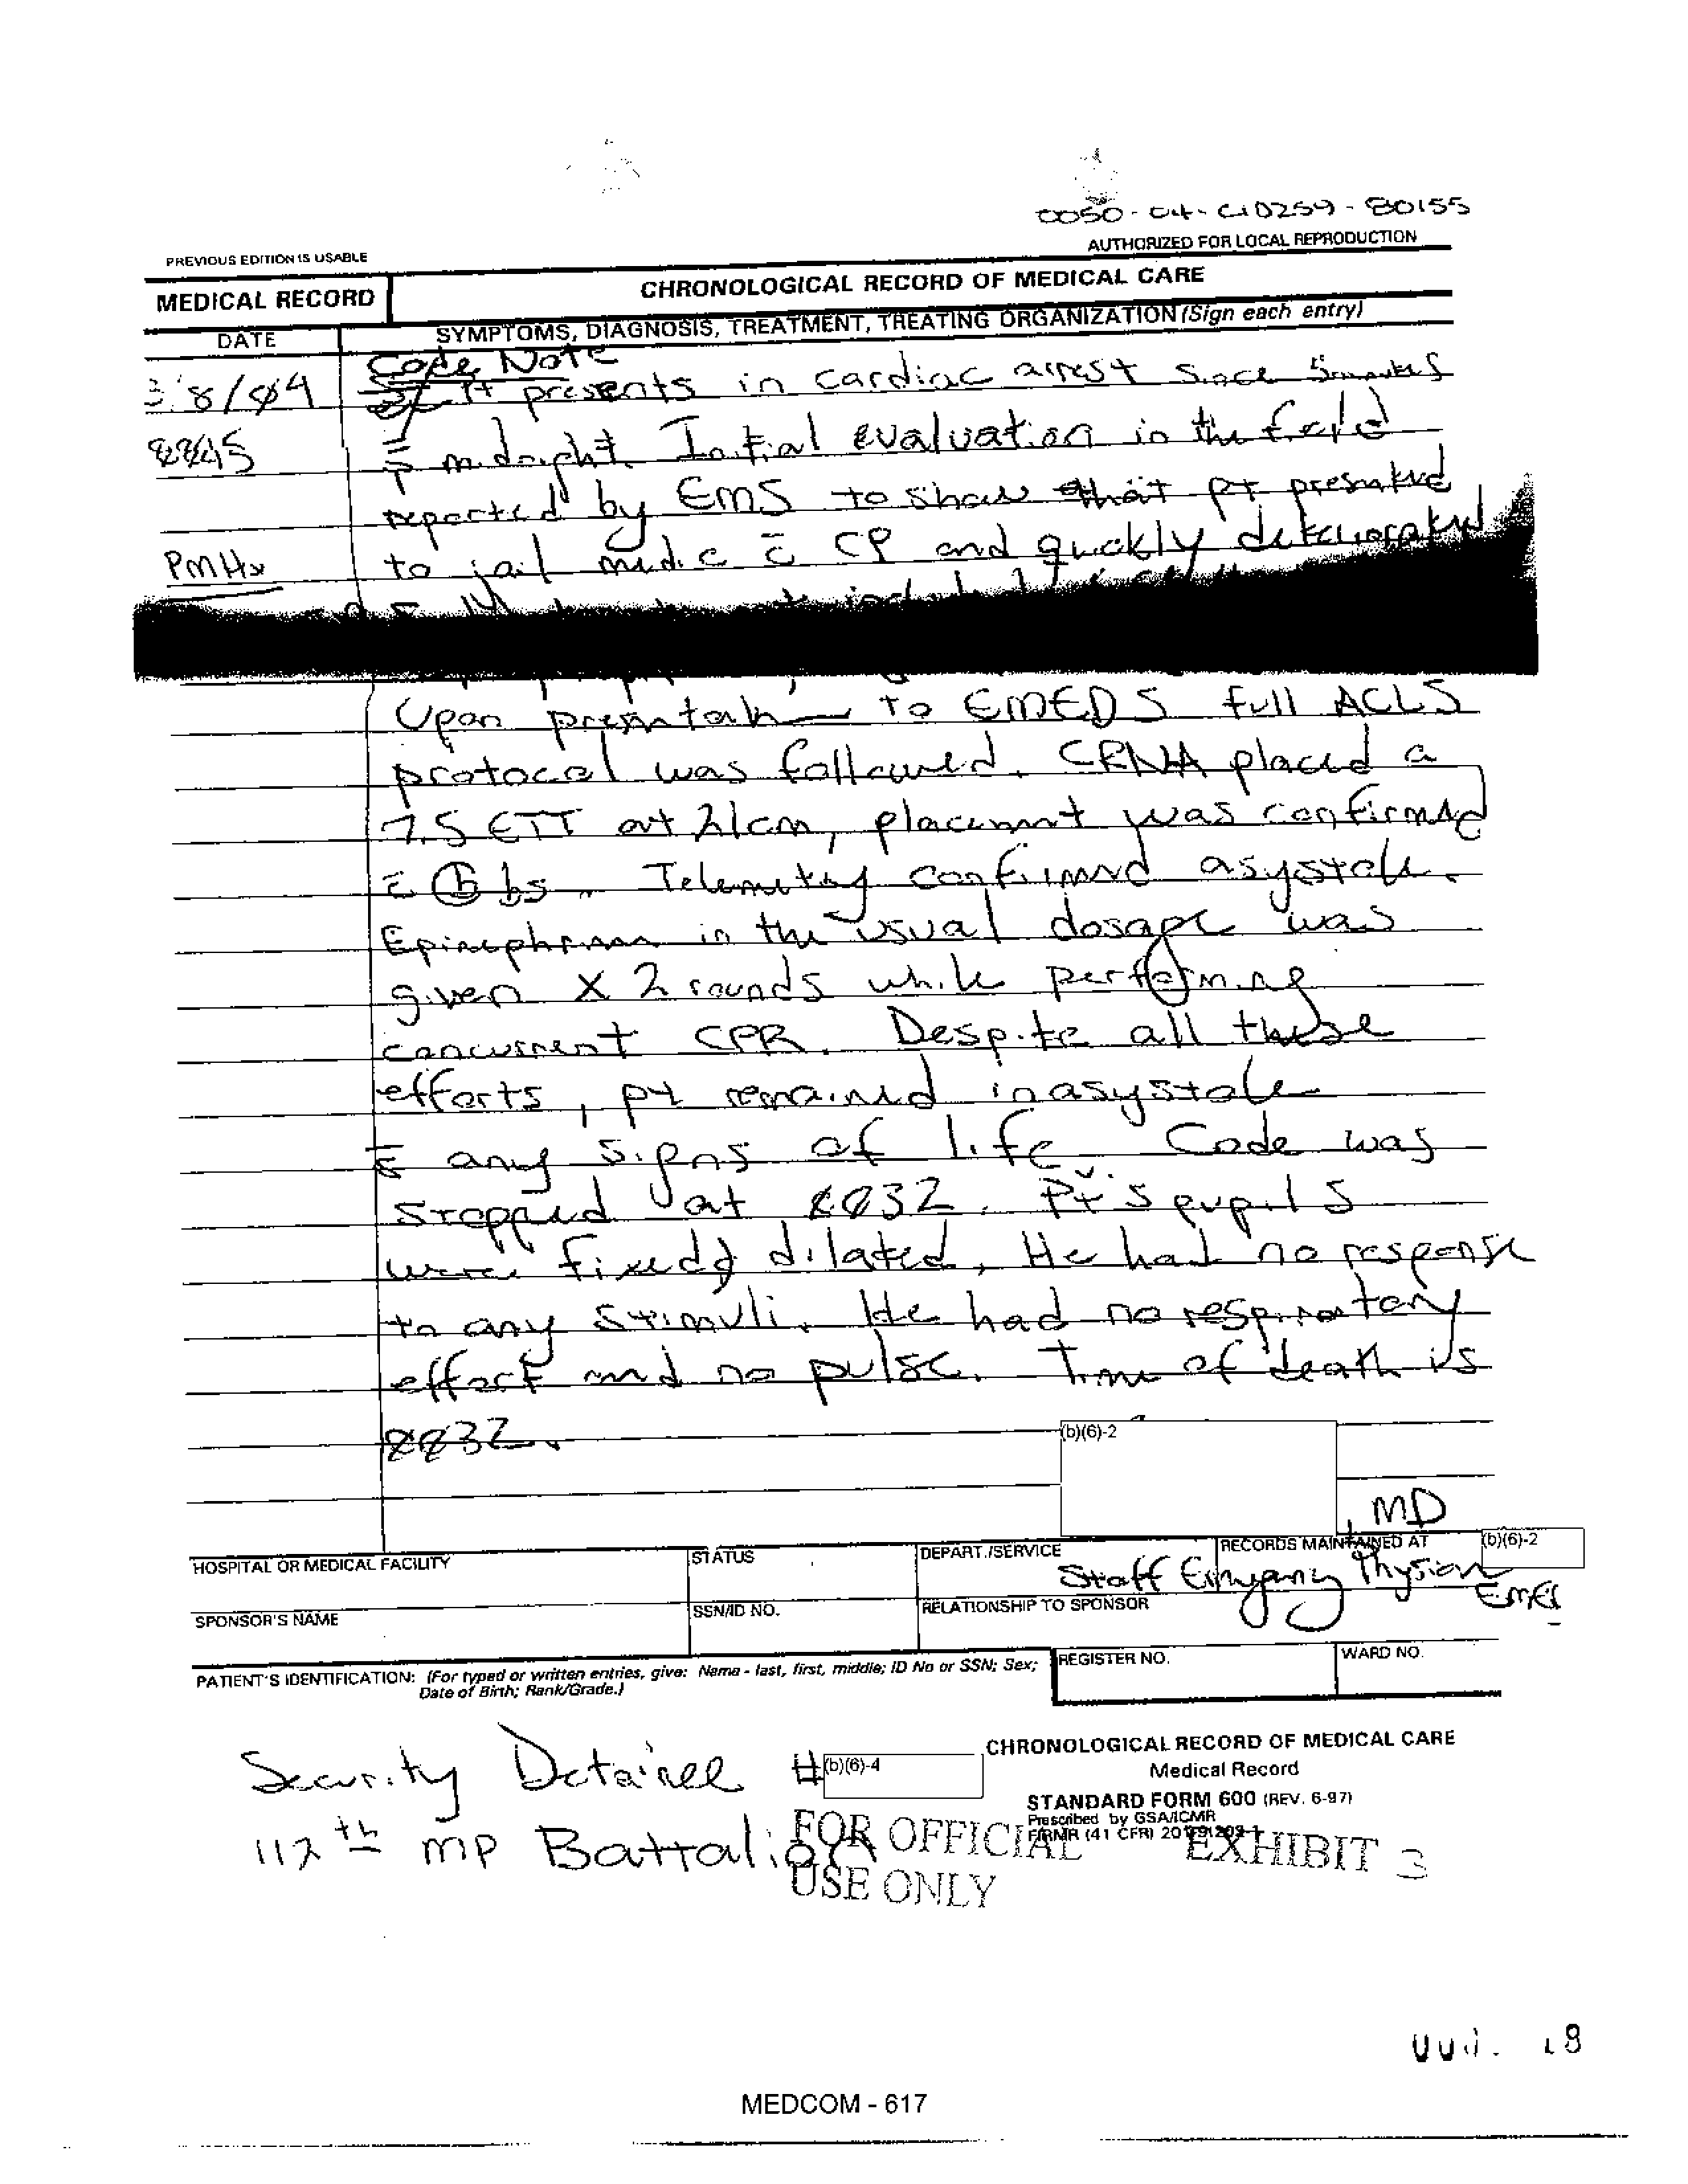 0050-04-CID259-80155
AUTHORIZED FOR LOCAL REPRODUCTION
PREVIOUS EDITION IS USABLE
MEDICAL RECORD
CHRONOLOGICAL RECORD OF MEDICAL CARE
DATE
SYMPTOMS, DIAGNOSIS, TREATMENT, TREATING ORGANIZATION (Sign each entry)
Code Note
8/04 Pt presents in cardiac arrest since 5 minutes
0045 p̄ midnight. Initial evaluation in the field
reported by EMS to show that pt presented
PMHx to jail medic c̄ CP and quickly deteriorated
Upon presentation to EMEDS full ACLS
protocol was followed. CRNA placed a
7.5 ETT at 21cm, placement was confirmed
c̄ Ⓑ bs. Telemetry confirmed asystole.
Epinephrine in the usual dosage was
given X 2 rounds while performing
concurrent CPR. Despite all these
efforts, pt remained in asystole
s̄ any signs of life. Code was
stopped at 0032. Pt's pupils
were fixed & dilated. He had no response
to any stimuli. He had no respiratory
effort and no pulse. Time of death is
0032.
(b)(6)-2
, MD
HOSPITAL OR MEDICAL FACILITY
STATUS
DEPART./SERVICE
RECORDS MAINTAINED AT
(b)(6)-2
Staff Emergency Physician
SPONSOR'S NAME
SSN/ID NO.
RELATIONSHIP TO SPONSOR
PATIENT'S IDENTIFICATION: (For typed or written entries, give: Name - last, first, middle; ID No or SSN; Sex;
Date of Birth; Rank/Grade.)
REGISTER NO.
WARD NO.
Security Detainee # (b)(6)-4
112th MP Battalion
CHRONOLOGICAL RECORD OF MEDICAL CARE
Medical Record
STANDARD FORM 600 (REV. 6-97)
Prescribed by GSA/ICMR
FIRMR (41 CFR)
FOR OFFICIAL
USE ONLY
EXHIBIT 3
MEDCOM - 617